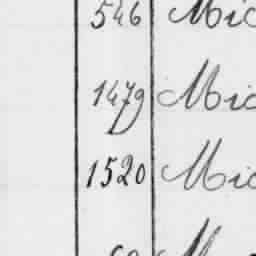 546 Mic
1479 Mic
1520 Mic